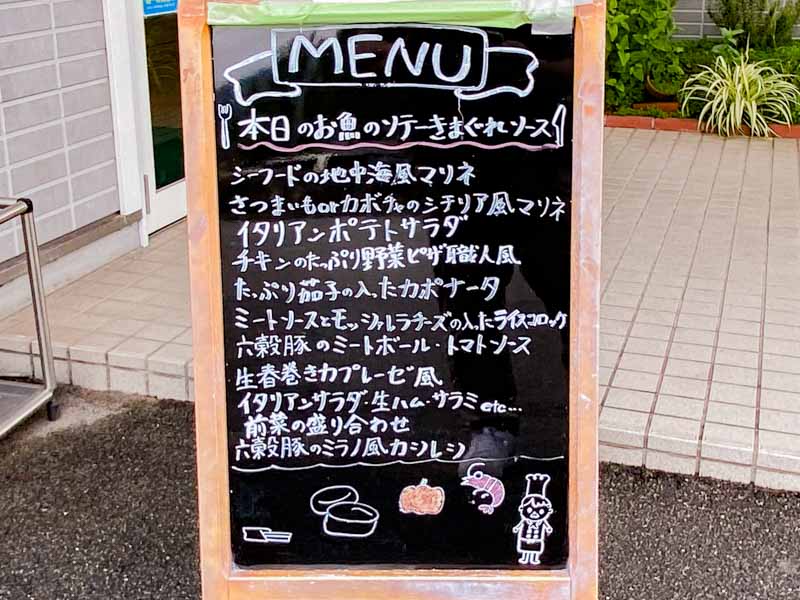 MENU
本日のお魚のソテーきまぐれソース
シーフードの地中海風マリネ
さつまいもorカボチャのシチリア風マリネ
イタリアンポテトサラダ
チキンのたっぷり野菜ピザ職人風
たっぷり茄子の入ったカポナータ
ミートソースとモッツァレラチーズの入ったライスコロッケ
六穀豚のミートボール・トマトソース
生春巻きカプレーゼ風
イタリアンサラダ・生ハム・サラミetc...
前菜の盛り合わせ
六穀豚のミラノ風カツレツ